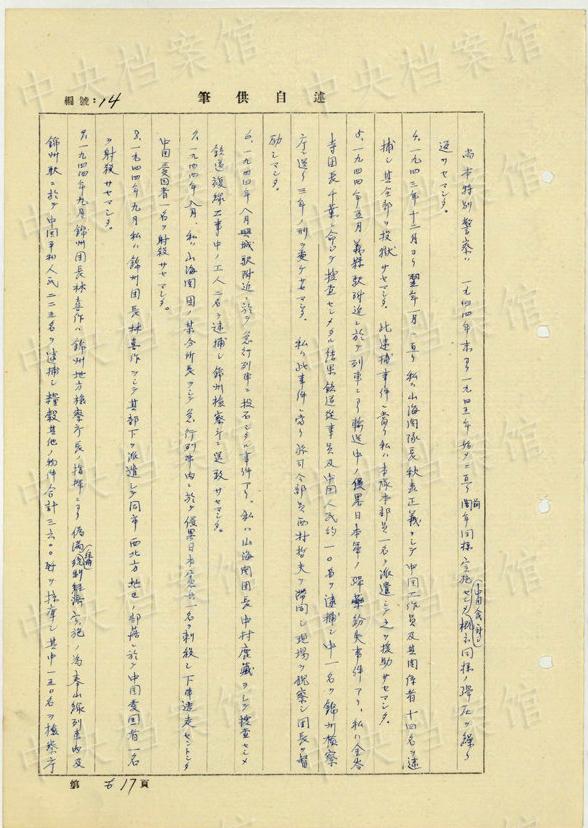 述自供筆
編號：14
尚本特別警察ハ 一九四四年末ヨリ一九四五年始ニ亘リ前年同様実施セシメ概ネ同様ノ弾圧ヲ繰リ
返サセマシタ。
4、一九四三年十二月ヨリ翌年一月ニ亘リ私ハ山海関隊長秋吉正義ヲシテ中国工作員及其関係者十四名ヲ逮
捕シ其全部ヲ投獄サセマシタ。此逮捕事件ニ当リ私ハ本隊本部員一名ヲ派遣シテ之ヲ援助サセマシタ。
5、一九四四年五月 義県駅附近ニ於テ列車ニヨリ輸送中ノ侵略日本軍ノ弾薬紛失事件アリ、私ハ
団長千葉ニ命ジテ検査セシメタル結果鉄道従事員及中国人民約一〇名ヲ逮捕シ中一名ヲ錦州検察
庁ニ送リ三年ノ刑ヲ受ケサセマシタ。私ハ此事件ニ当リ旅司令部員西村哲夫ヲ帯同シ現場ヲ視察シ団長ヲ督
励シマシタ。
6、一九四四年八月興城駅附近ニ於テ急行列車ニ投石シタル事件アリ、私ハ山海関団長中村廣蔵ヲシテ検査セシメ
鉄道複線工事中ノ工人二名ヲ逮捕シ錦州検察庁ニ送致サセマシタ。
7、一九四四年八月、私ハ山海関団ノ某分所長ヲシテ急行列車内ニ於テ侵略日本憲兵一名ヲ刺殺シ下車逃走セントシタ
中国愛国者一名ヲ射殺サセマシタ。
8、一九四四年九月 私ハ錦州団長林喜作ヲシテ其部下ヲ派遣シテ同市西北方地区ノ部落ニ於テ中国愛国者一名
ヲ射殺サセマシタ。
9、一九四四年九月 錦州団長林喜作ハ錦州地方検察庁長ノ指揮ニヨリ偽満統制経済実施ノ為奉山線列車内及
錦州駅ニ於テ中国平和人民二二五名ヲ逮捕シ糧穀其他ノ物件合計三六〇〇瓩ヲ押収シ其中一五〇名ヲ検察庁
第 17 頁
中央档案馆